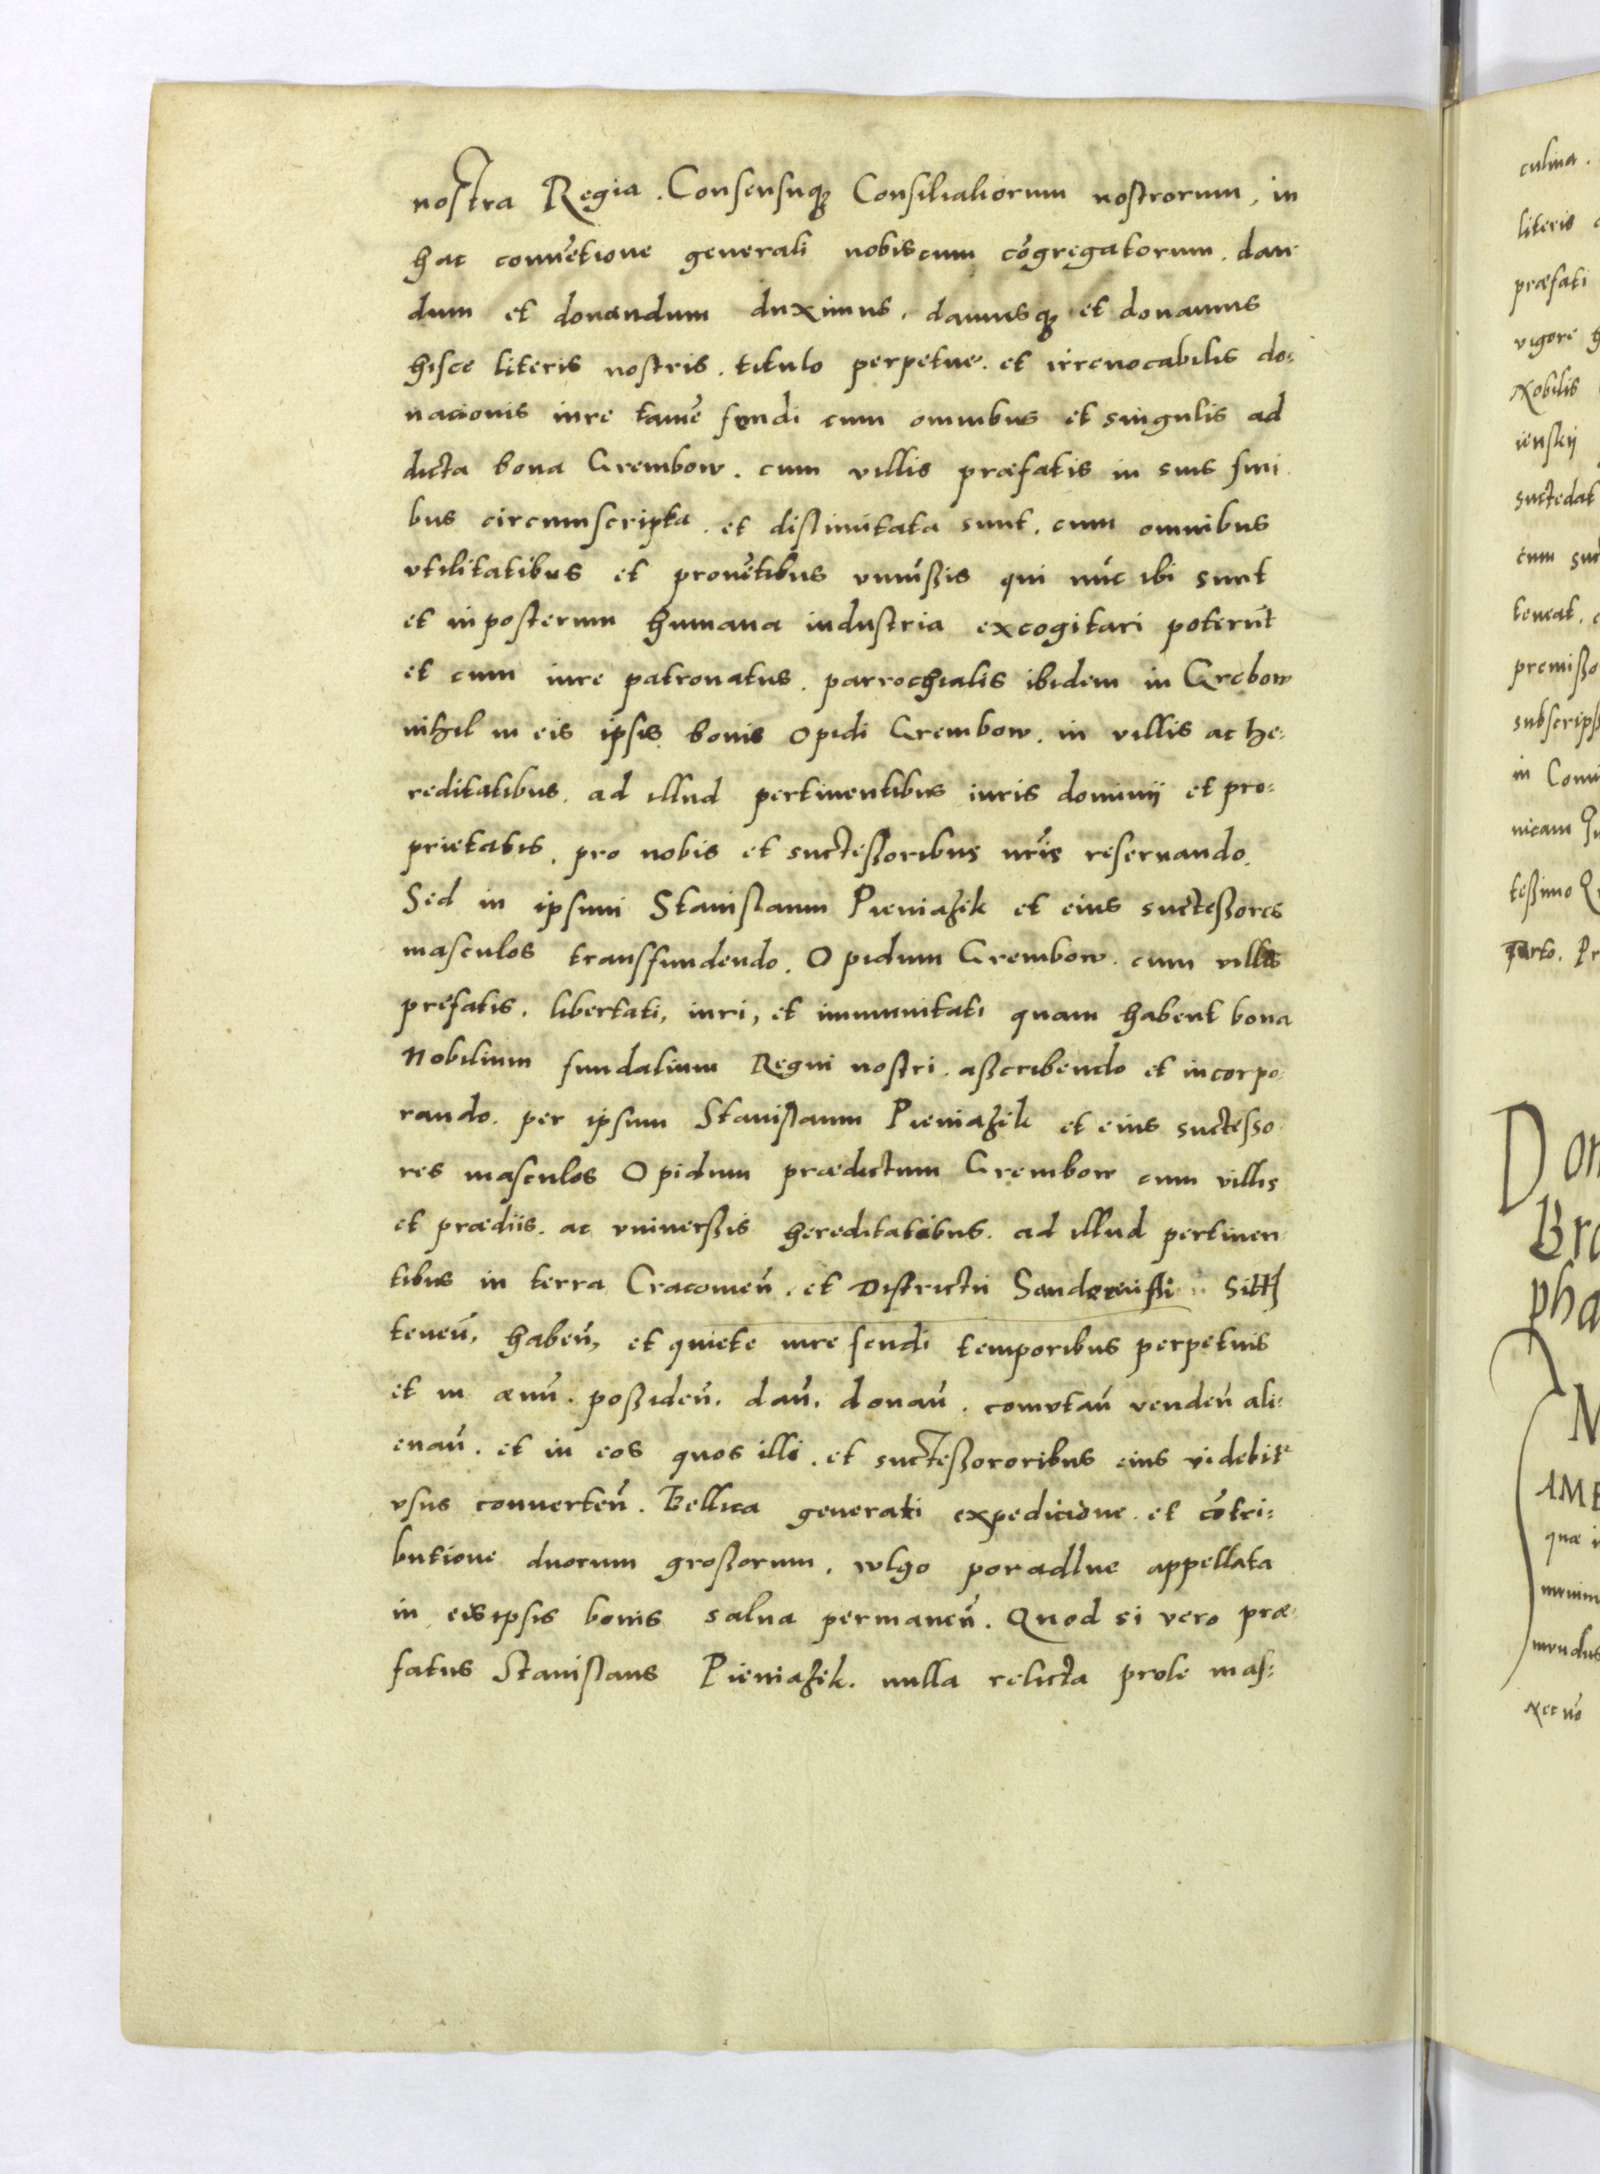 nostra Regia. Consensuq₃ Consilialiorum nostrorum, in
hac conuẽtione generali nobiscum cõgregatorum. dan
dum et donandum duximus, damusq₃ et donamus
hisce literis nostris. titulo perpetue. et irreuocabilis do:
nacionis iure tamẽ feudi cum omnibus et singulis ad
dicta bona Grembow. cum villis præfatis in suis fini
bus circumscripta. et distinctata sunt. cum omnibus
vtilitatibus et prouẽtibus vniũßis qui nũc ibi sunt
et inposterum humana industria excogitari poterũt
et cum iure patronatus. parrochialis ibidem in Grẽbow
nihil in eis ipsis bonis Opidi Grembow. in villis ac he:
reditatibus. ad illud pertinentibus iuris dominij et pro:
prietatis, pro nobis et succeßoribus nr̃is reseruando.
Sed in ipsum Stanislaum Pieniažik et eius succeßores
masculos transfundendo. Opidum Grembow. cum villis
prefatis. libertati, iuri, et immunitati quam habent bona
Nobilium feudalium Regni nostri. aßcribendo et incorpo:
rando. per ipsum Stanislaum Pieniažik et eius succeßo
res masculos Opidum prædictum Grembow cum villis
et prædiis. ac vniuerßis hereditatibus. ad illud pertinen
tibus in terra Cracouieñ. et Districtu
teneñ, habeñ, et quiete iure feudi temporibus perpetuis
et in æuũ. poßideñ. dañ. donañ. comutañ vendeñ ali:
enañ. et in eos quos illi. et succeßororibus eius videbit̃
vsus conuerteñ. Bellica generali expedicione. et cõtri:
butione duorum großorum, wlgo poradlne appellata
in eisipsis bonis salua permaneñ. Quod si vero præ:
fatus Stanislaus Pieniažik. nulla relicta prole mas:
culina.
literis
præfati
vigore
Nobilis
ienskij
succedat
cum
teneat.
premißo
subscripß
in
nicam
teßimo
quarto.
Don
Bra
pha
AME
quæ
mundus